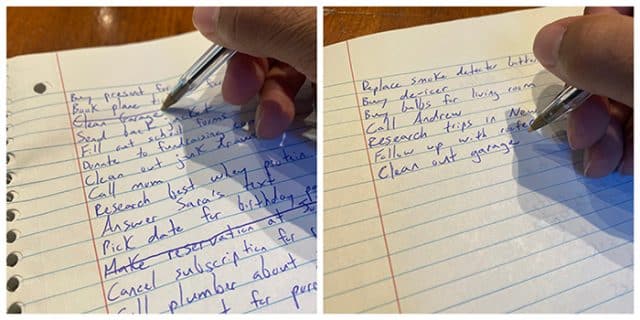 Buy present for
Book plane
Clean Garage
Send back
Fill out school forms
Donate to fundraising
Clean out junk
Call mom
Research best whey protein
Answer Sara's text
Pick date for birthday
Make reservation at
Cancel subscription for
Call plumber about
for
Replace smoke detector
Buy de-icer
Buy bulbs for living room
Call Andrew
Research trips in
Follow up with
Clean out garage